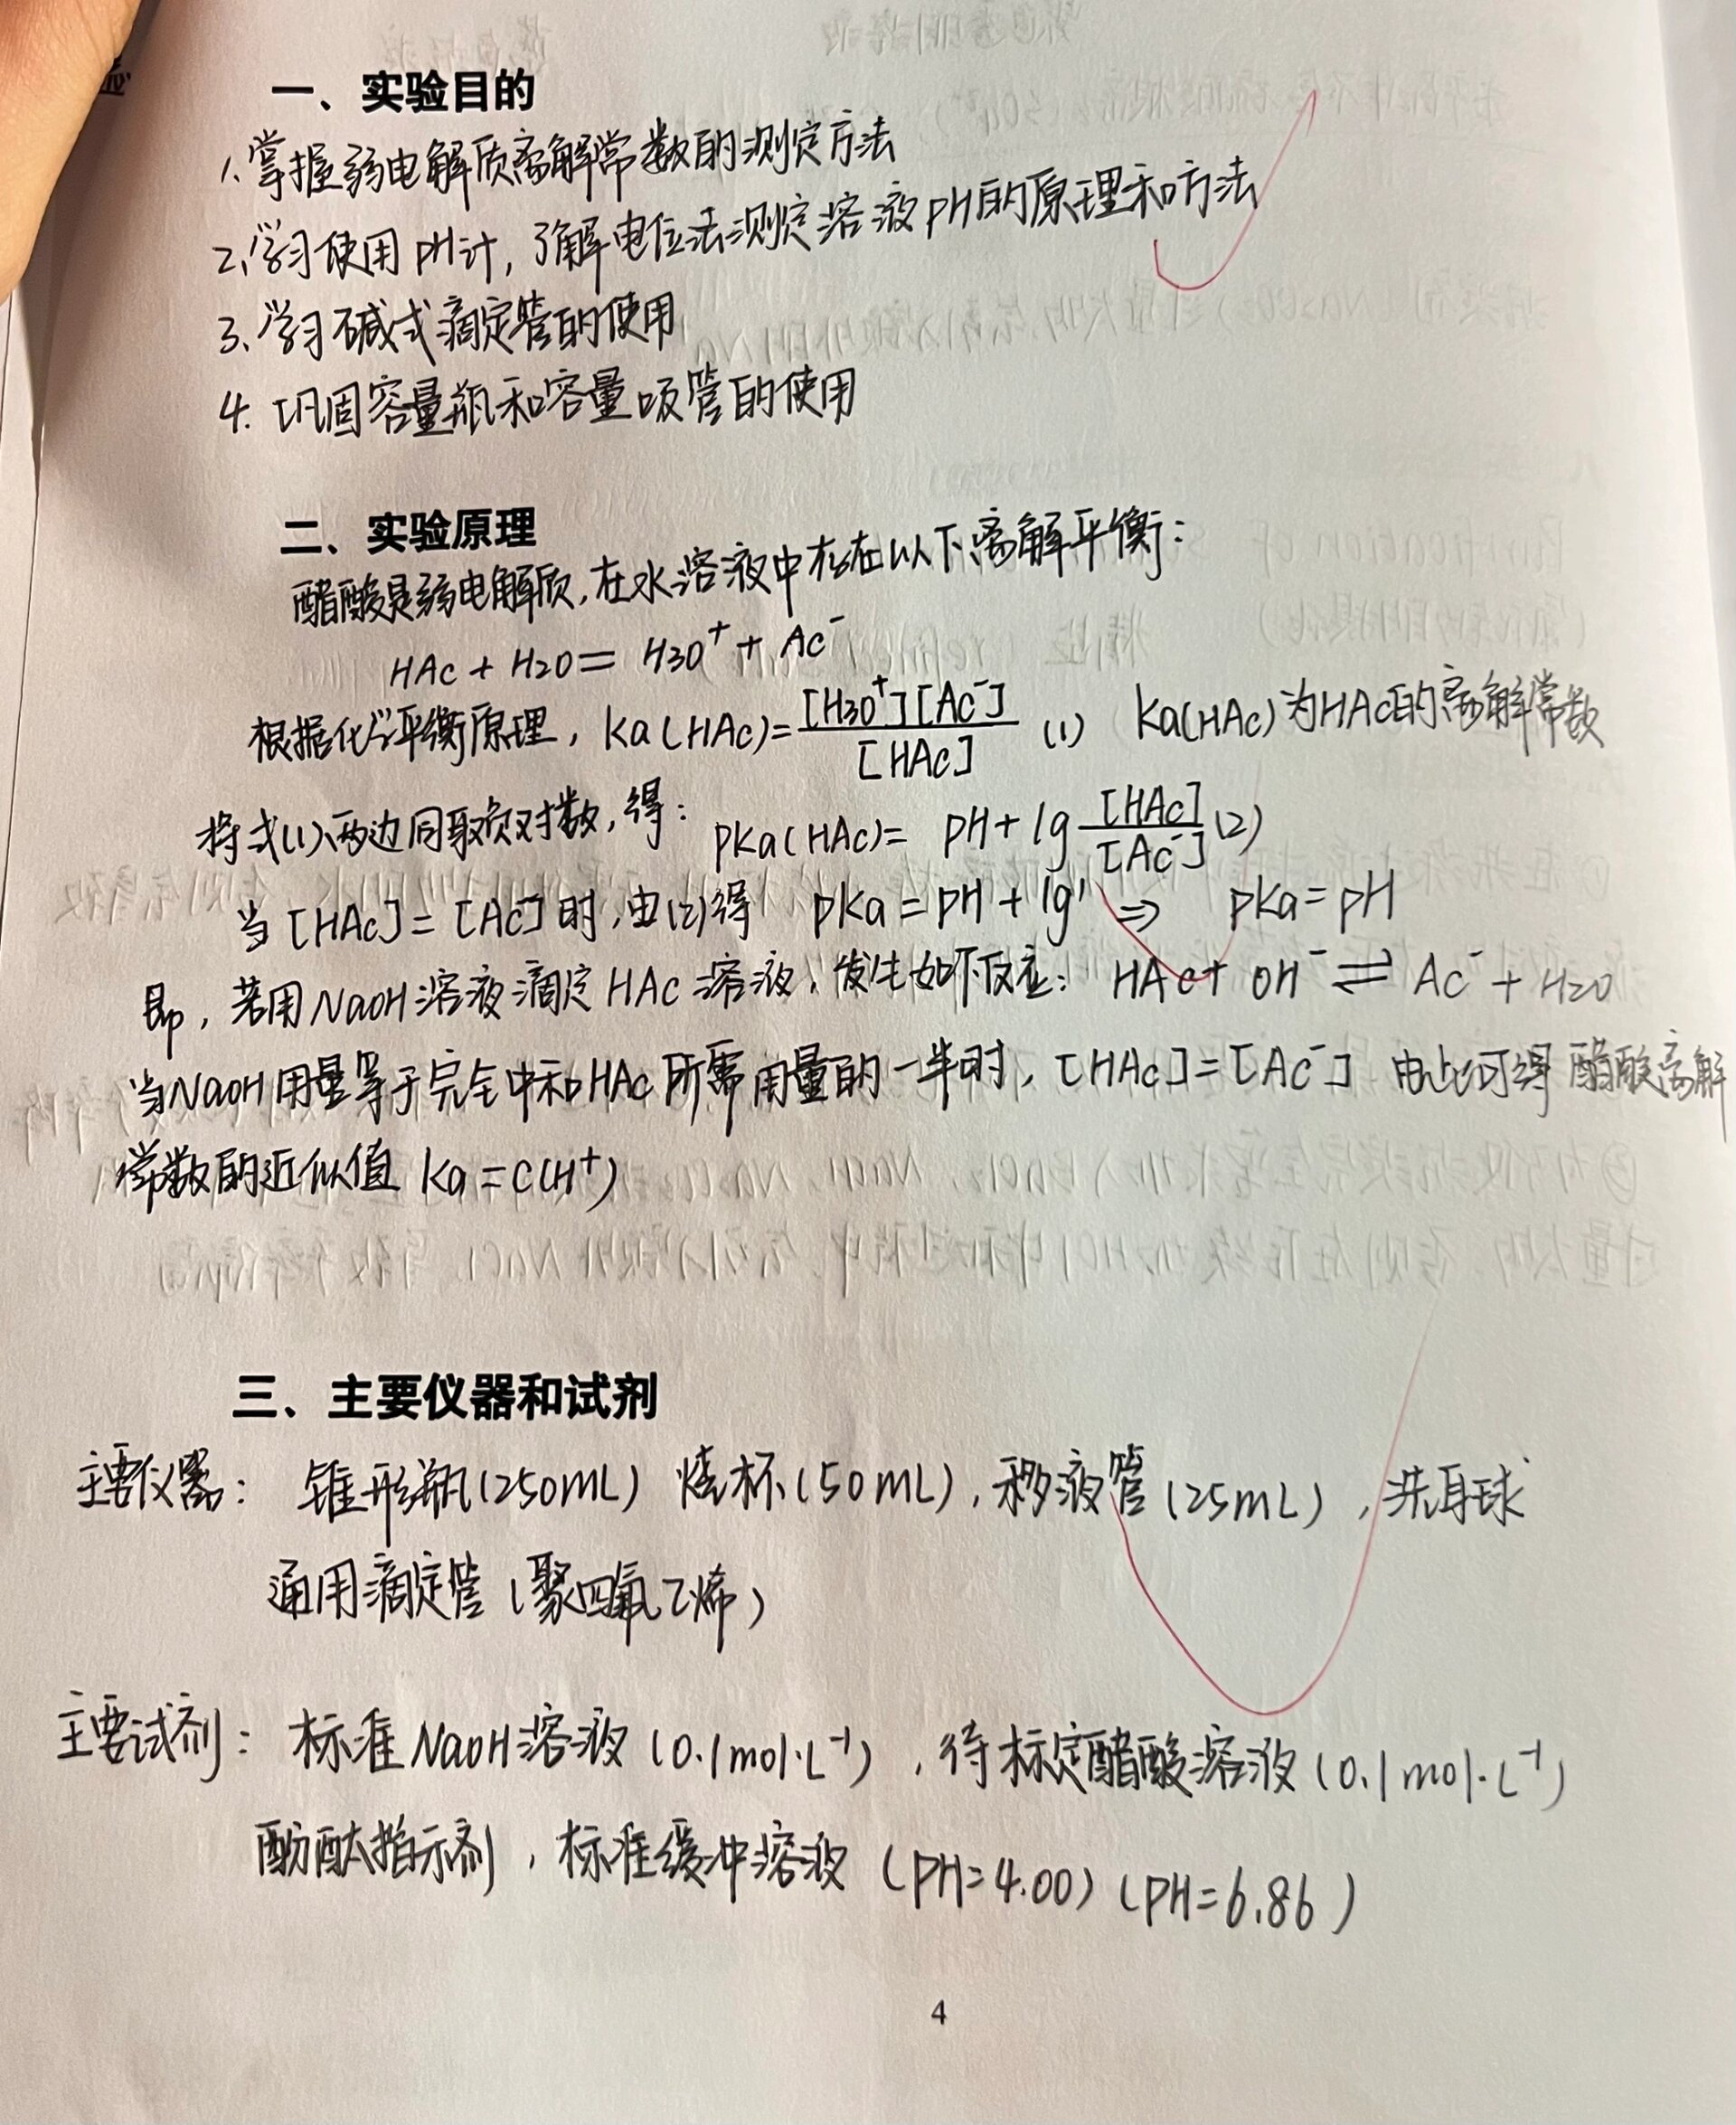 一、实验目的
1、掌握弱电解质离解常数的测定方法
2、学习使用pH计，了解电位法测定溶液pH的原理和方法
3、学习碱式滴定管的使用
4. 巩固容量瓶和容量吸管的使用
二、实验原理
醋酸是弱电解质，在水溶液中存在以下离解平衡：
HAc + H2O = H3O⁺ + Ac⁻
根据化学平衡原理，Ka(HAc)=[H3O⁺][Ac⁻]/[HAc] (1) Ka(HAc)为HAc的离解常数
将式(1)两边同取负对数，得：pKa(HAc)= pH+lg [HAc]/[Ac⁻] (2)
当[HAc]=[Ac⁻]时，由(2)得 pKa=pH+lg1 ⇒ pKa=pH
即，若用NaOH溶液滴定HAc溶液，发生如下反应：HAc+ OH⁻ ⇌ Ac⁻ + H2O
当NaOH用量等于完全中和HAc所需用量的一半时，[HAc]=[Ac⁻] 由此可得醋酸离解
常数的近似值 Ka=C(H⁺)
三、主要仪器和试剂
主要仪器：锥形瓶(250mL) 烧杯(50mL)，移液管(25mL)，洗耳球
通用滴定管(聚四氟乙烯)
主要试剂：标准NaOH溶液(0.1mol·L⁻¹)，待标定醋酸溶液(0.1mol·L⁻¹)
酚酞指示剂，标准缓冲溶液 (PH=4.00) (PH=6.86)
4